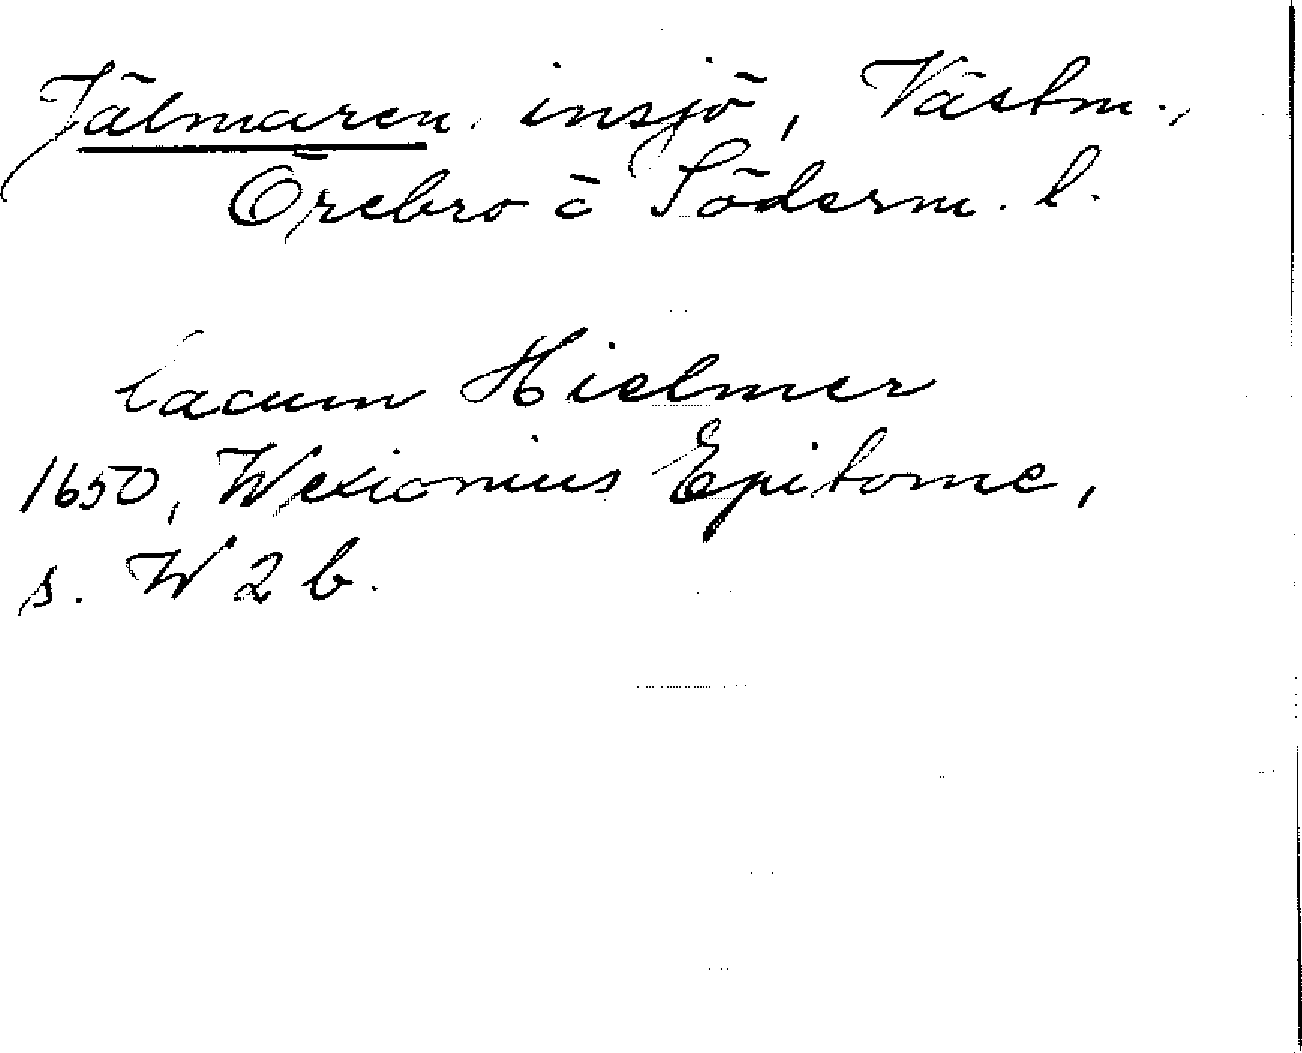 Jälmaren, insjö, Västm.,
Örebro o Söderm. l.
lacum Hielmer
1650, Wexionius Epitome,
s. W 2 b.